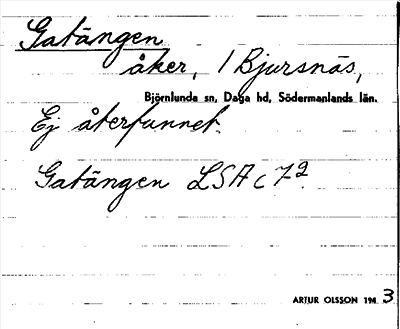 Gatängen
åker, 1 Bjursnäs,
Björnlunda sn, Daga hd, Södermanlands län.
Ej återfunnet.
Gatängen LSA c 72
ARTUR OLSSON 194 3